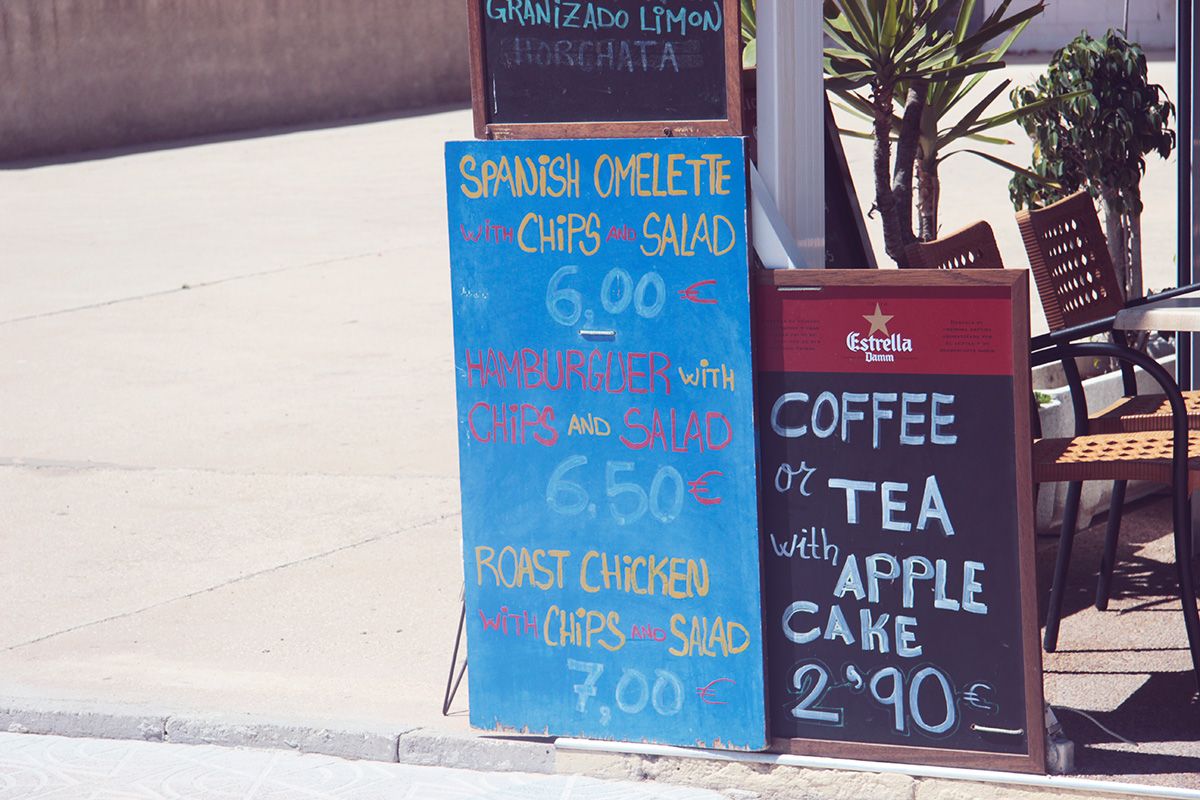 GRANIZADO LIMON
HORCHATA
SPANiSH OMELETTE
WiTH CHiPS AND SALAD
6,00 €
HAMBURGUER WiTH
CHiPS AND SALAD
6,50 €
ROAST CHiCKEN
WiTH CHiPS AND SALAD
7,00 €
Estrella
Damm
COFFEE
or TEA
with APPLE
CAKE
2'90 €